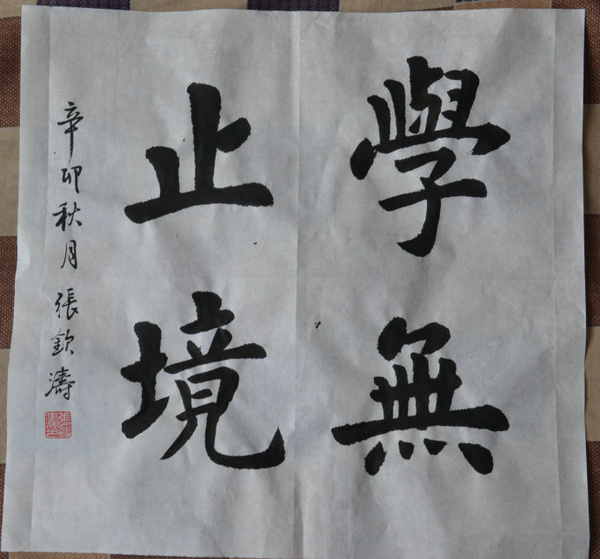 學無
止境
辛卯秋月張欽濤